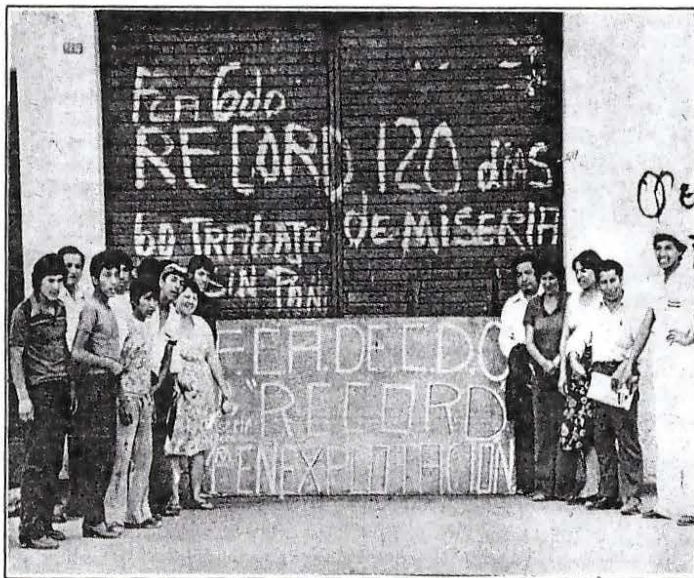 Fca Gdo
RECORD 120 días
60 TRABAJA DE MISERIA
SIN PAN
FCA. DE C.D.O
"RECORD
EN EXPLOTACION